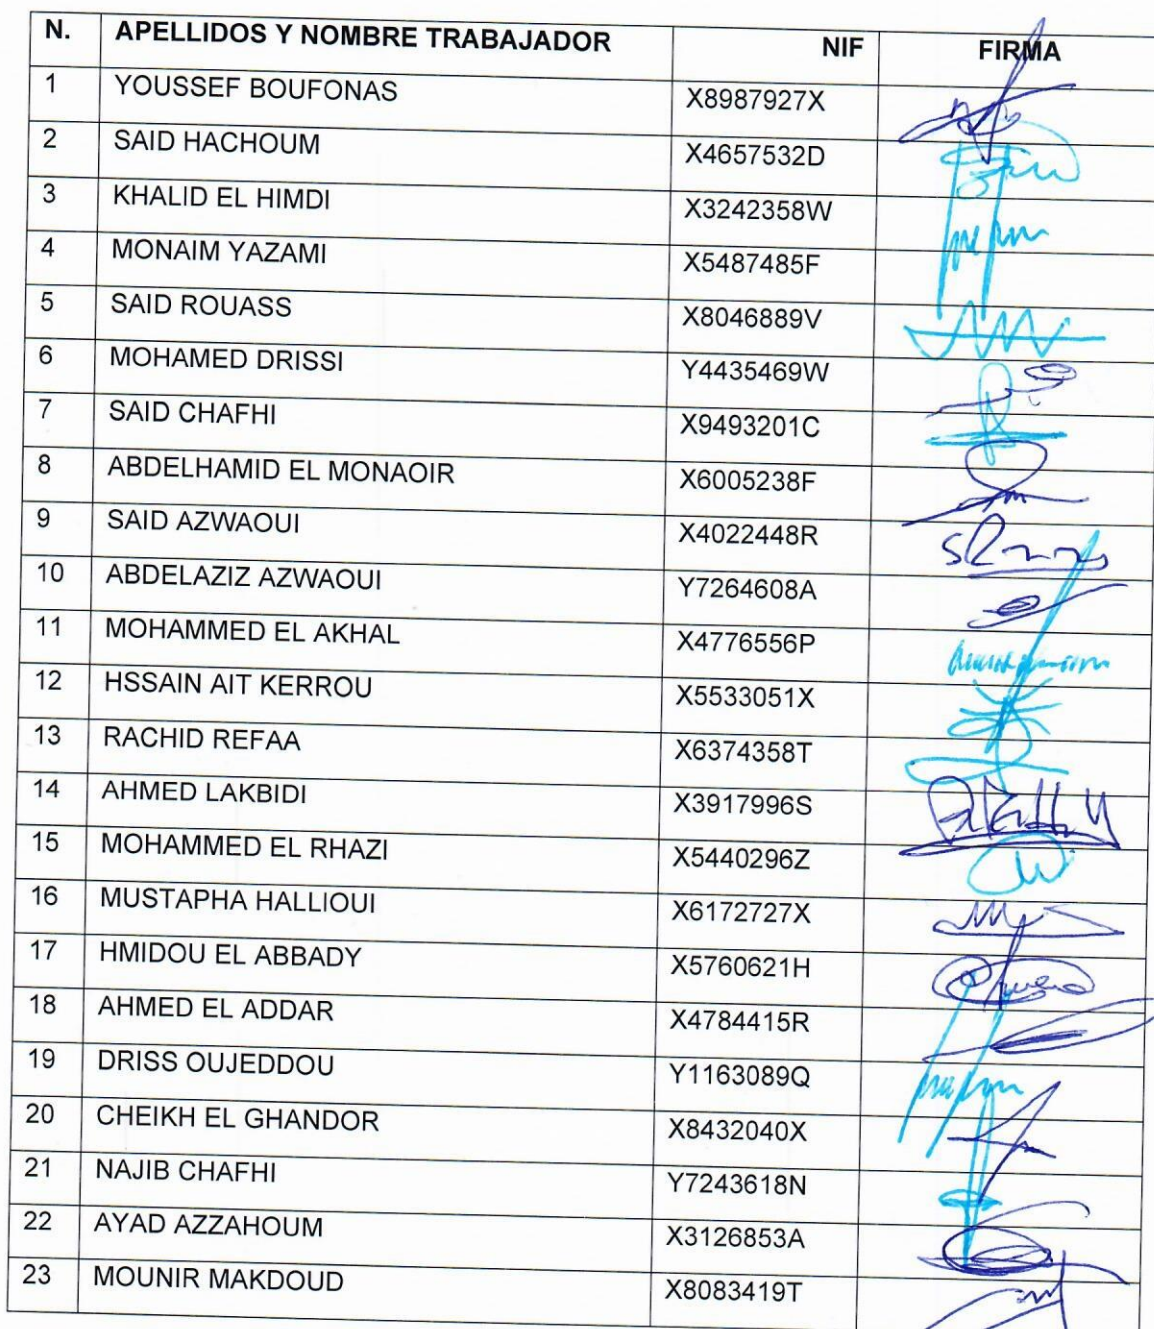 N. APELLIDOS Y NOMBRE TRABAJADOR NIF FIRMA
1 YOUSSEF BOUFONAS X8987927X
2 SAID HACHOUM X4657532D
3 KHALID EL HIMDI X3242358W
4 MONAIM YAZAMI X5487485F
5 SAID ROUASS X8046889V
6 MOHAMED DRISSI Y4435469W
7 SAID CHAFHI X9493201C
8 ABDELHAMID EL MONAOIR X6005238F
9 SAID AZWAOUI X4022448R
10 ABDELAZIZ AZWAOUI Y7264608A
11 MOHAMMED EL AKHAL X4776556P
12 HSSAIN AIT KERROU X5533051X
13 RACHID REFAA X6374358T
14 AHMED LAKBIDI X3917996S
15 MOHAMMED EL RHAZI X5440296Z
16 MUSTAPHA HALLIOUI X6172727X
17 HMIDOU EL ABBADY X5760621H
18 AHMED EL ADDAR X4784415R
19 DRISS OUJEDDOU Y1163089Q
20 CHEIKH EL GHANDOR X8432040X
21 NAJIB CHAFHI Y7243618N
22 AYAD AZZAHOUM X3126853A
23 MOUNIR MAKDOUD X8083419T